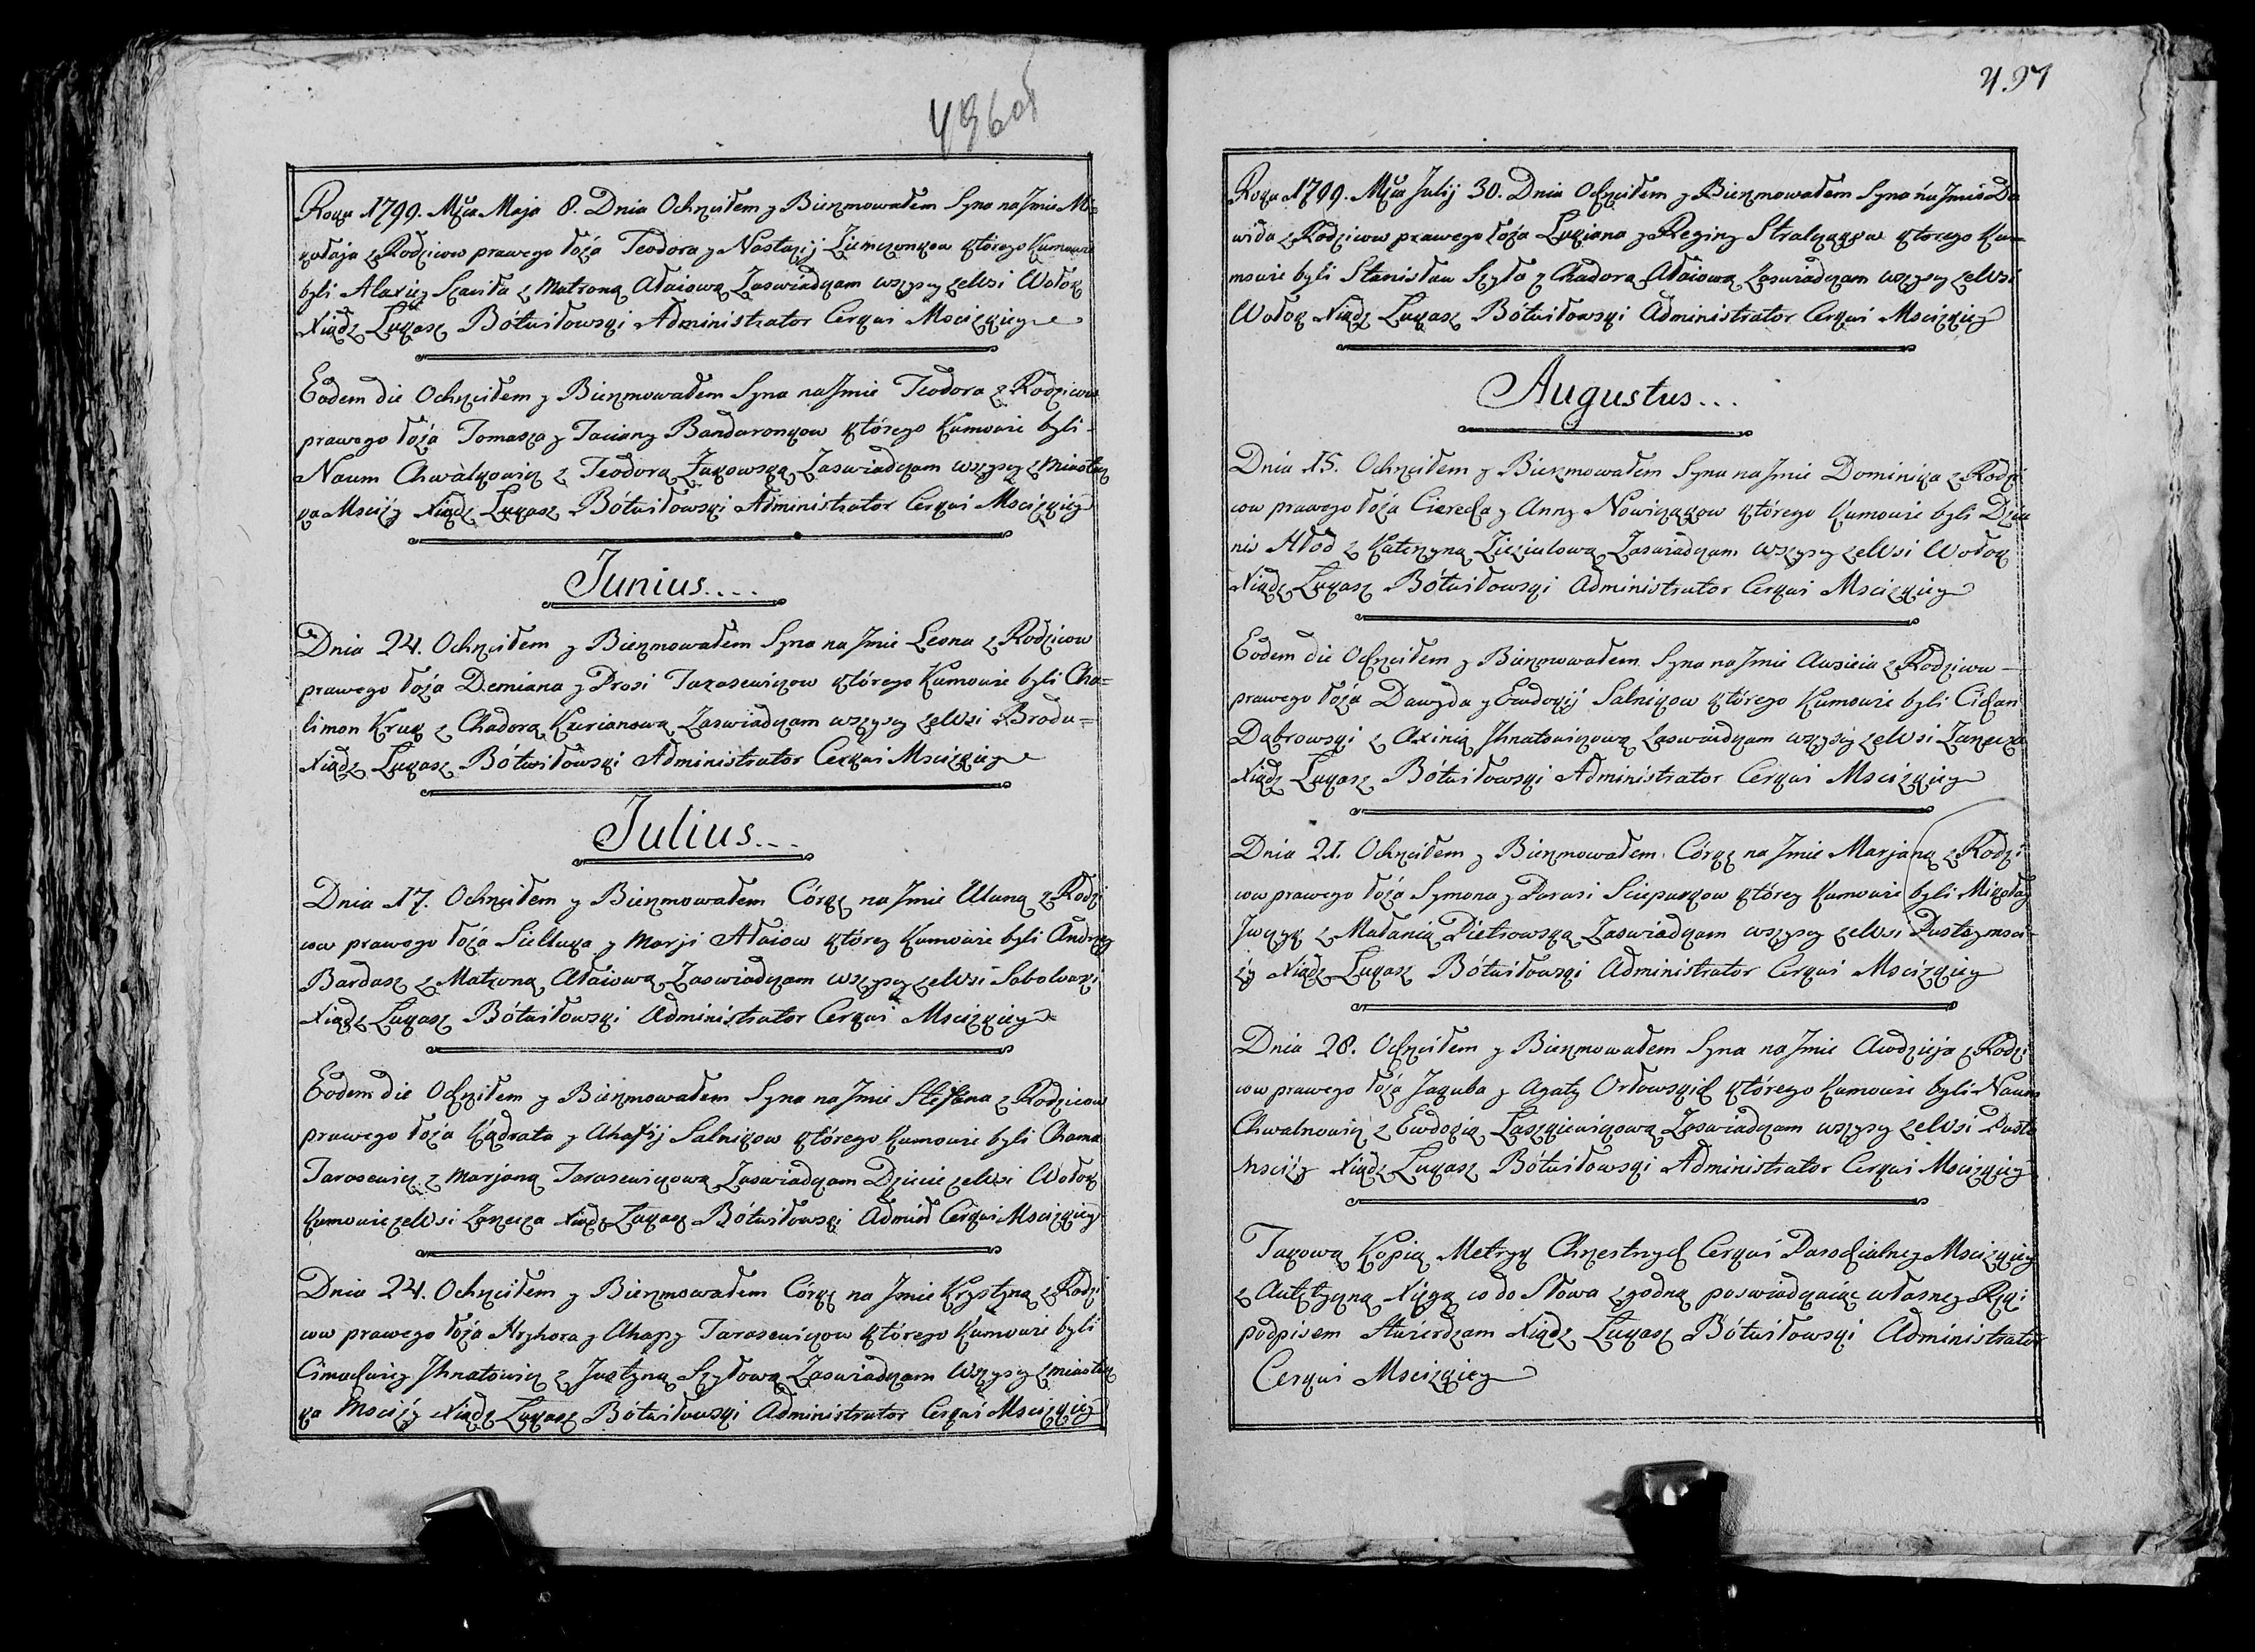 496об
Roku 1799. Mca Maja 8. Dnia Ochrzciłem y Bierzmowałem Syna na Jmie Mi=
kołaja z Rodzicow prawego łoża Teodora y Nastazij Ziemczonkow którego Kumowie
byli Alaxiey Szczella z Matroną Ałaiową Zaswiadczam wszyscy ze Wsi Wołok
Xiądz Łukasz Bótwiłowski Administrator Cerkwi Mscizkiey
Eodem die Ochrzciłem y Bierzmowałem Syna na Jmie Teodora z Rodzicow
prawego łoża Tomasza y Taciany Bandaronkow którego Kumowie byli
Naum Chwalkowicz z Teodorą Żukowską Zaswiadczam wszyscy z Miastecz
ka Msciży Xiądz Łukasz Bótwiłowski Administrator Cerkwi Mscizkiey
Junius....
Dnia 24. Ochrzciłem y Bierzmowałem Syna na Jmie Leona z Rodzicow
prawego łoża Demiana y Prosi Tarasewiczow którego Kumowie byli Cha=
limon Kruk z Chadorą Kurianową Zaswiadczam wszyscy ze Wsi Brodu=
Xiądz Łukasz Bótwiłowski Administrator Cerkwi Mscizkiey
Julius...
Dnia 17. Ochrzciłem y Bierzmowałem Córkę na Jmie Ulaną z Rodzi
cow prawego łoża Sielluka y Marji Ałaiow którey Kumowie byli Andrzey
Bardasz z Matroną Ałaiową Zaswiadczam wszyscy ze Wsi Sobolwaki
Xiądz Łukasz Bótwiłowski Administrator Cerkwi Mscizkiey
Eodem die Ochrzciłem y Bierzmowałem Syna na Jmie Stefana z Rodzicow
prawego łoża Kądrata y Ahafij Salnikow którego Kumowie byli Chama
Tarasewicz z Marjaną Tarasewiczową Zaswiadczam Dziecie ze Wsi Wołok
Kumowie ze Wsi Zarzecza Xiądz Łukasz Bótwiłowski Admist Cerkwi Mscizkiey
Dnia 24. Ochrzciłem y Bierzmowałem Córkę na Jmie Krystynę z Rodzi
cow prawego łoża Hryhora y Ahapy Tarasewiczow którego Kumowie byli
Cimochwiey Jhnatowicz z Justyną Szyłową Zaswiadczam Wszyscy z miastecz
ka Msciży Xiądz Łukasz Bótwiłowski Administrator Cerkwi Mscizkiey
497
Roku 1799. Mca Julij 30. Dnia Ochrzciłem y Bierzmowałem Syna na Jmie Da
wida z Rodzicow prawego łoża Łukiana y Reginy Stralczukow ktorego Ku=
mowie byli Stanisław Szyło z Chadorą Ałaiową Zaswiadczam wszyscy ze Wsi
Wołok Xiądz Łukasz Bótwiłowski Administrator Cerkwi Mscizkiey
Augustus...
Dnia 15. Ochrzciłem y Bierzmowałem Syna na Jmie Dominika z Rodzi
cow prawego łoża Cierecha y Anny Nowiczkow którego Kumowie byli Dzia
nis Hłod z Katerzyną Ziziulową Zaswiadczam wszyscy ze Wsi Wołok
Xiądz Łukasz Bótwiłowski Administrator Cerkwi Mscizkiey
Eodem die Ochrzciłem y Bierzmowałem Syna na Jmie Awsieia z Rodzicow
prawego łoża Dawyda y Ewdokij Salnikow którego Kumowie byli Cichan
Dąbrowski z Axinią Jhnatowiczową Zaswiadczam wszyscy ze Wsi Zarzecza
Xiądz Łukasz Bótwiłowski Administrator Cerkwi Mscizkiey
Dnia 21. Ochrzciłem y Bierzmowałem Córkę na Jmie Marjanę z Rodzi
cow prawego łoża Symona y Parasi Sciepurkow którey Kumowie byli Mikołay
z Małanią Pietrowską Zaswiadczam wszyscy ze Wsi Pustzymsci=
ży Xiądz Łukasz Bótwiłowski Administrator Cerkwi Mscizkiey
Dnia 28. Ochrzciłem y Bierzmowałem Syna na Jmie Awdzieja z Rodzi
cow prawego łoża Jakuba y Agaty Orłowskich którego Kumowie byli Naum
Chwalkowicz z Ewdokią Laszkiewiczową Zaswiadczam wszyscy ze Wsi Pusto
Msciży Xiądz Łukasz Bótwiłowski Administrator Cerkwi Mscizkiey
Takową Kopią Metryk Chrzestnych Cerkwi Parochialney Mscizkiey
z Autętyczną Xięgą co do Słowa zgodną poswiadczaiąc własney Ręki
podpisem Stwierdzam Xiądz Łukasz Bótwiłowski Administrator
Cerkwi Mscizkiey